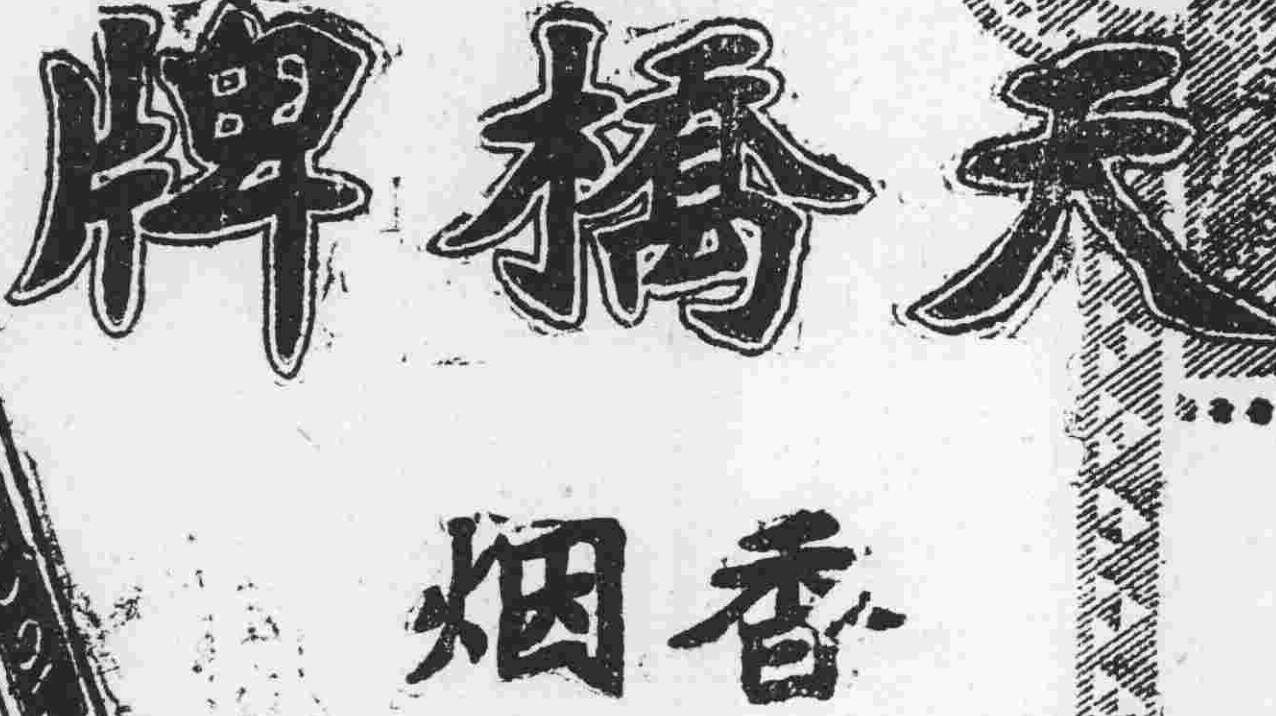 天橋牌
香烟